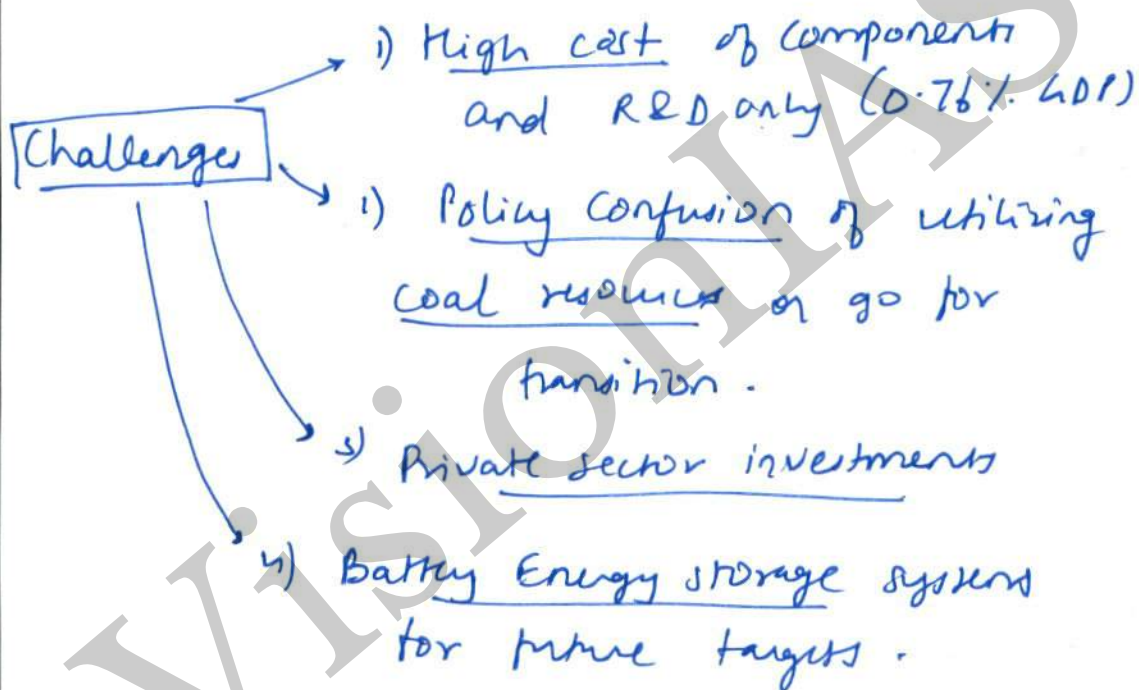 1) High cost of components
and R&D only (0.76% GDP)
Challenges
1) Policy Confusion of utilizing
coal resources or go for
transition.
3) Private sector investments
4) Battery Energy storage systems
for future targets.
VisionIAS